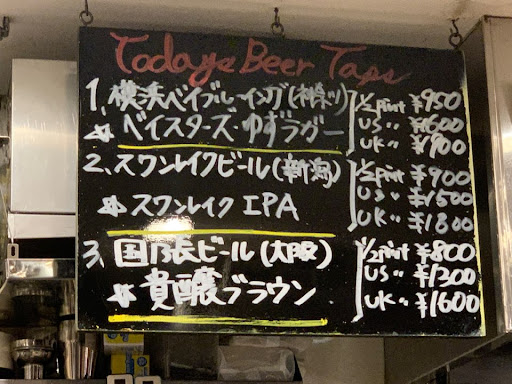 Todays Beer Taps
1. 横浜ベイブルーイング(神奈川) 1/2pint ¥950
☆ベイスターズ・ゆずラガー US 〃 ¥1600
UK 〃 ¥1900
2. スワンレイクビール(新潟) 1/2pint ¥900
☆スワンレイク IPA US 〃 ¥1500
UK 〃 ¥1800
3. 国乃長ビール(大阪) 1/2pint ¥800
☆貴醸ブラウン US 〃 ¥1300
UK 〃 ¥1600